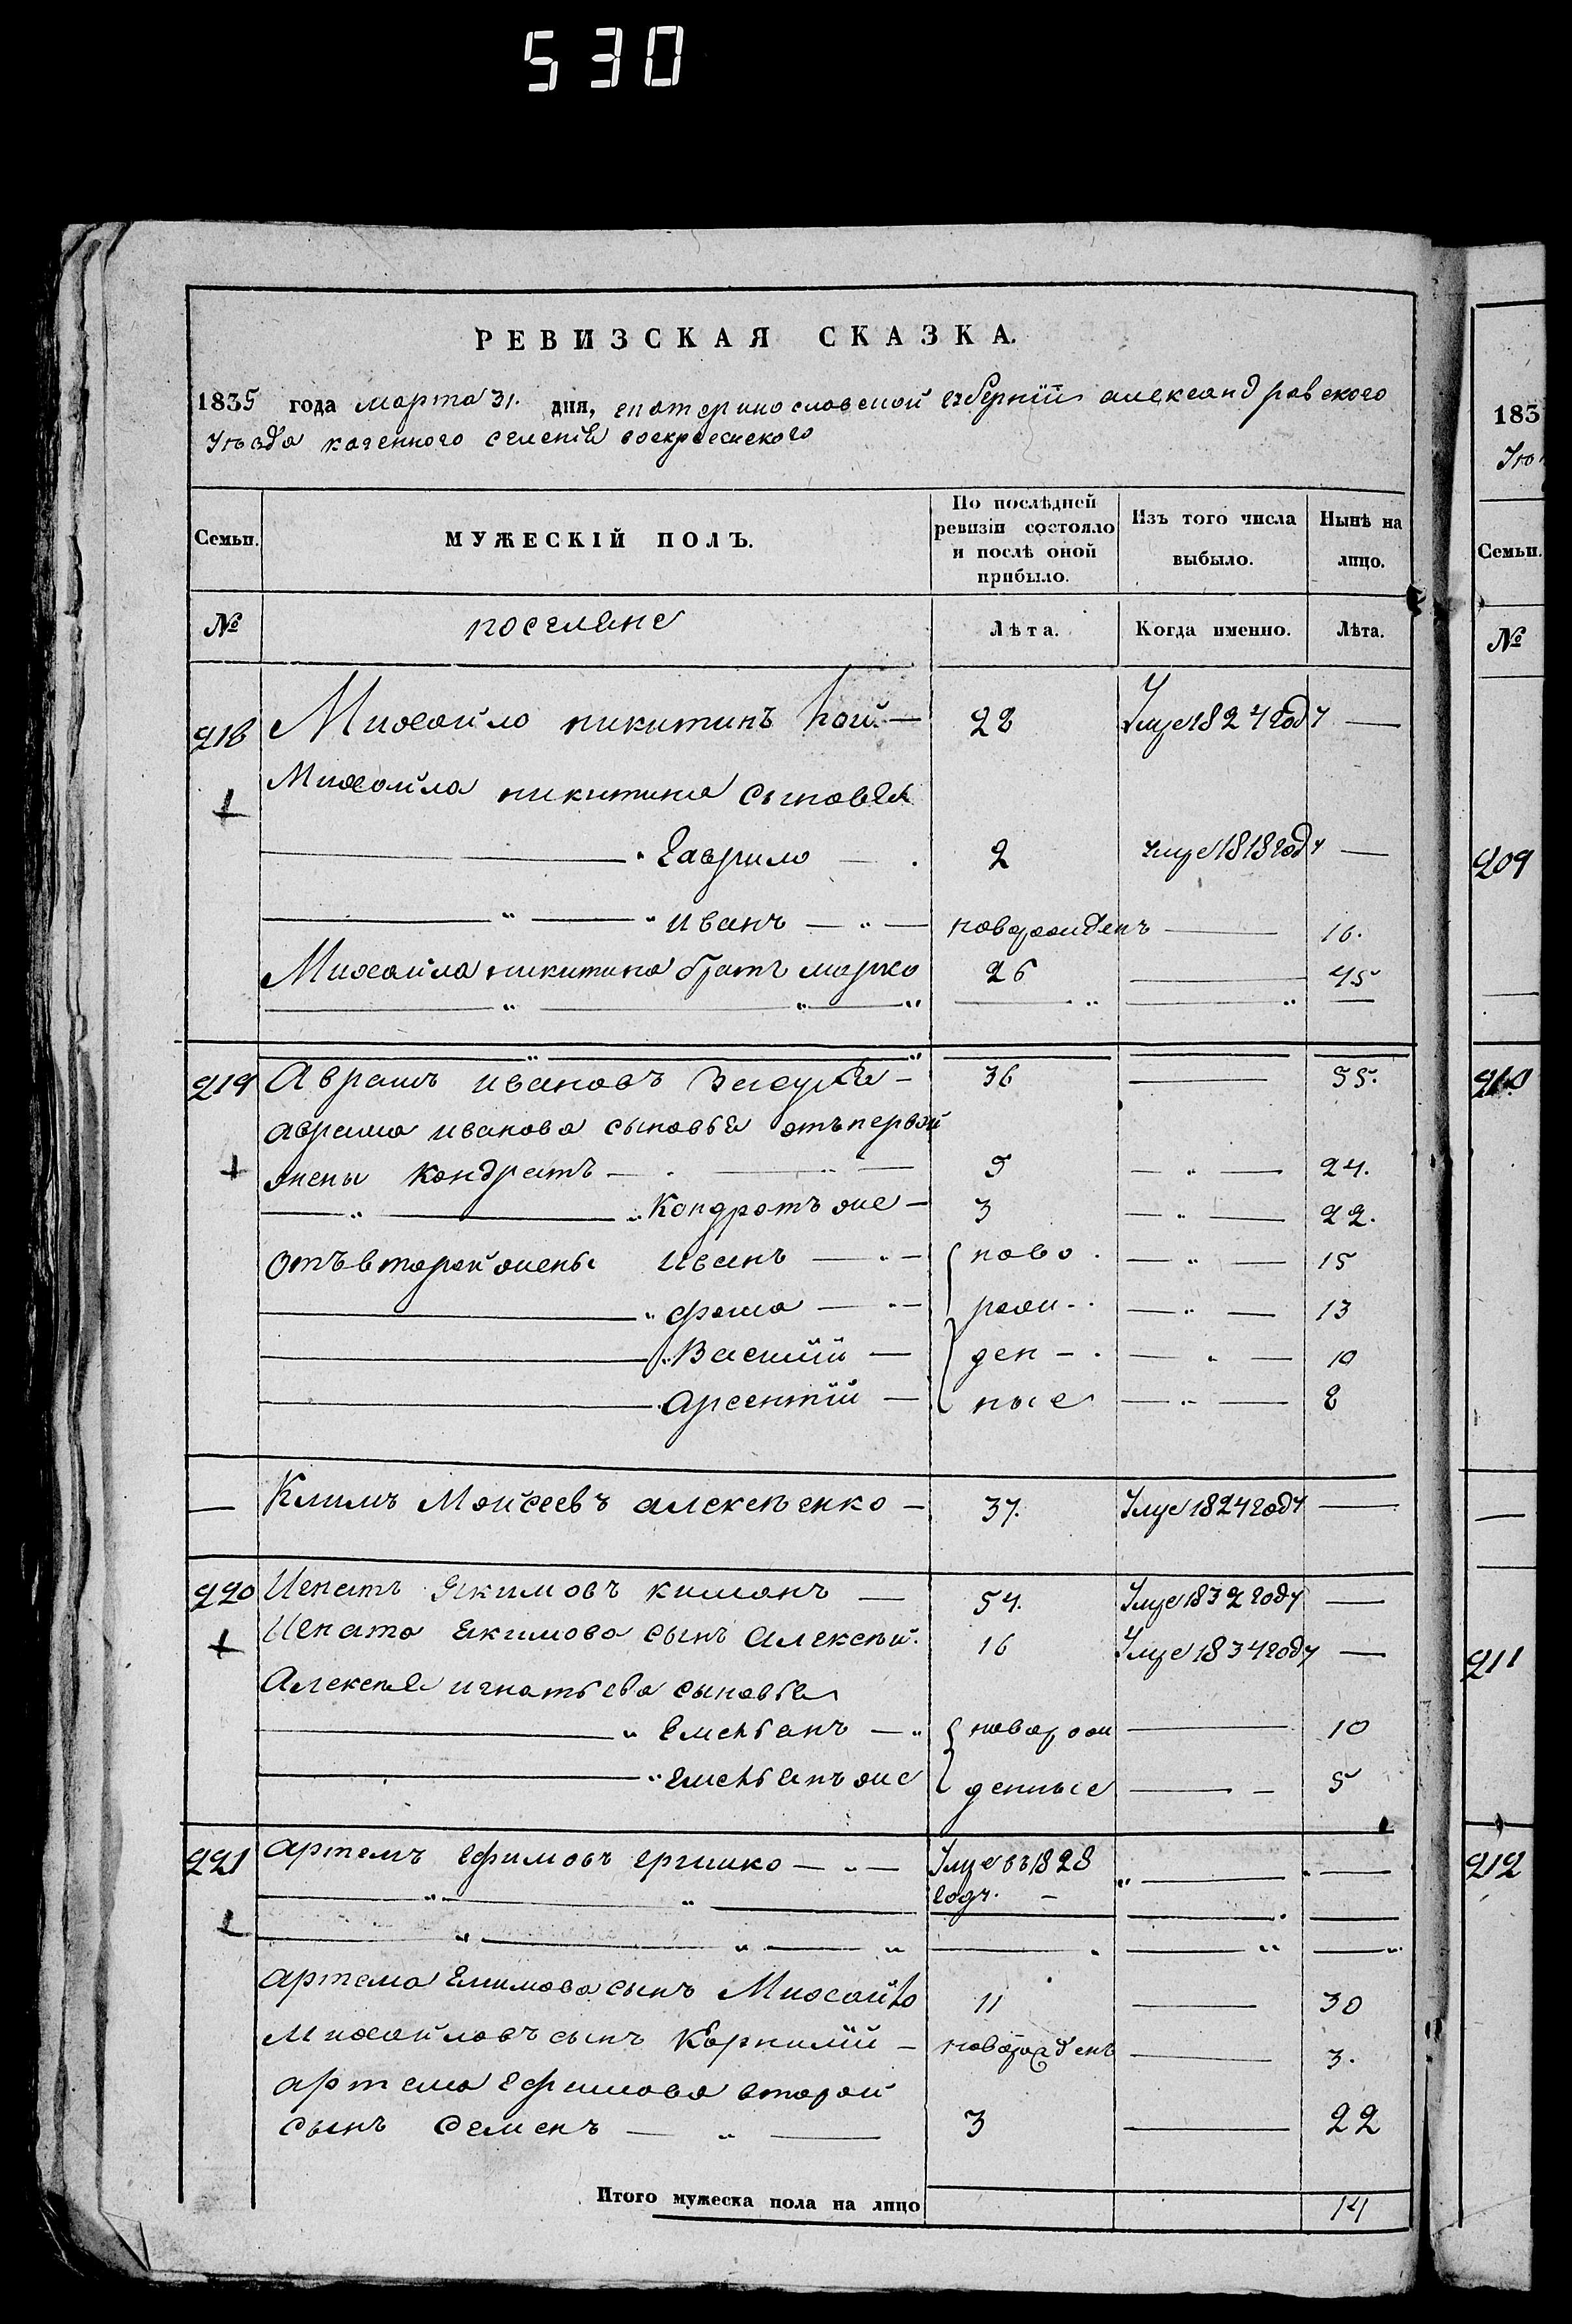 530
РЕВИЗСКАЯ СКАЗКА.
1835 года марта 31. дня, екатеринославской губернiи александровского
Уѣзда казенного селенiя воскресенского
Семьи. МУЖЕСКIЙ ПОЛЪ. По послѣдней ревизiи состояло и послѣ оной прибыло. Изъ того числа выбыло. Нынѣ на лицо.
№ поселяне Лѣта. Когда именно. Лѣта.
218 Михайло никитинъ — 28 Умре 1824 году —
Михайла никитина сыновья
гаврило — 2 умре 1818 году —
иванъ — новорожденъ — 16.
Михайла никитина братъ марко 26 — 45
219 Аврамъ ивановъ — 36 — 55.
аврама иванова сыновья отъ первой
жены Кондратъ — 5 — 24.
Кондратъ же — 3 — 22.
отъ второй жены иванъ — ново — 15
фома — рож — 13
Василiй — ден — 10
арсентiй — ные — 8
— Климъ Моисеевъ алексѣенко — 37. Умре 1824 году —
220 Игнатъ Якимовъ — 54. Умре 1832 году —
Игната Якимова сынъ Алексѣй. 16 Умре 1834 году —
Алексѣя игнатьева сыновья
Емельянъ — новорож — 10
емельянъ же денные — 5
221 артемъ ефимовъ — Умре въ 1828 —
году. —
артема Ефимова сынъ Михайло 11 — 30
Михайловъ сынъ Корнилiй — новорожденъ — 3.
артема ефимова второй
сынъ Семенъ — 3 — 22
Итого мужеска пола на лицо 14
183
Семьи.
№
209
210
211
212